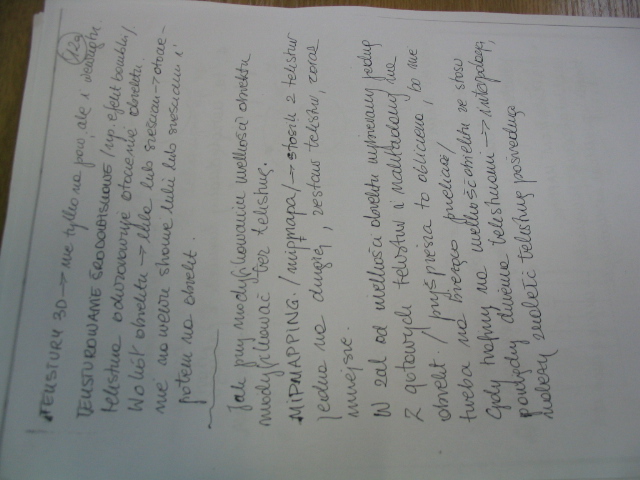 12g
TEKSTURY 3D → nie tylko na pow, ale i wewnątrz.
TEKSTUROWANIE ŚRODOWISKOWE / np. efekt bombki /
tekstura odwzorowuje otoczenie obiektu.
Wokół obiektu → kula lub sześcian → otocze-
nie na wewn. stronę kuli lub sześcianu i
potem na obiekt.
Jak przy modyfikowaniu wielkości obiektu
modyfikować też teksturę.
MIPMAPPING. /mipmapa/ → stosik z tekstur
jedna na drugiej, zestaw tekstur, coraz
mniejsze.
W zal od wielkości obiektu wybieramy jedną
z gotowych tekstur i nakładamy na
obiekt. / przyśpiesza to obliczenia, bo nie
trzeba na bieżąco przeliczać /
Gdy trafimy na wielkość obiektu ze stosu
pomiędzy dwiema teksturami → interpolacja,
należy znaleźć teksturę pośrednią